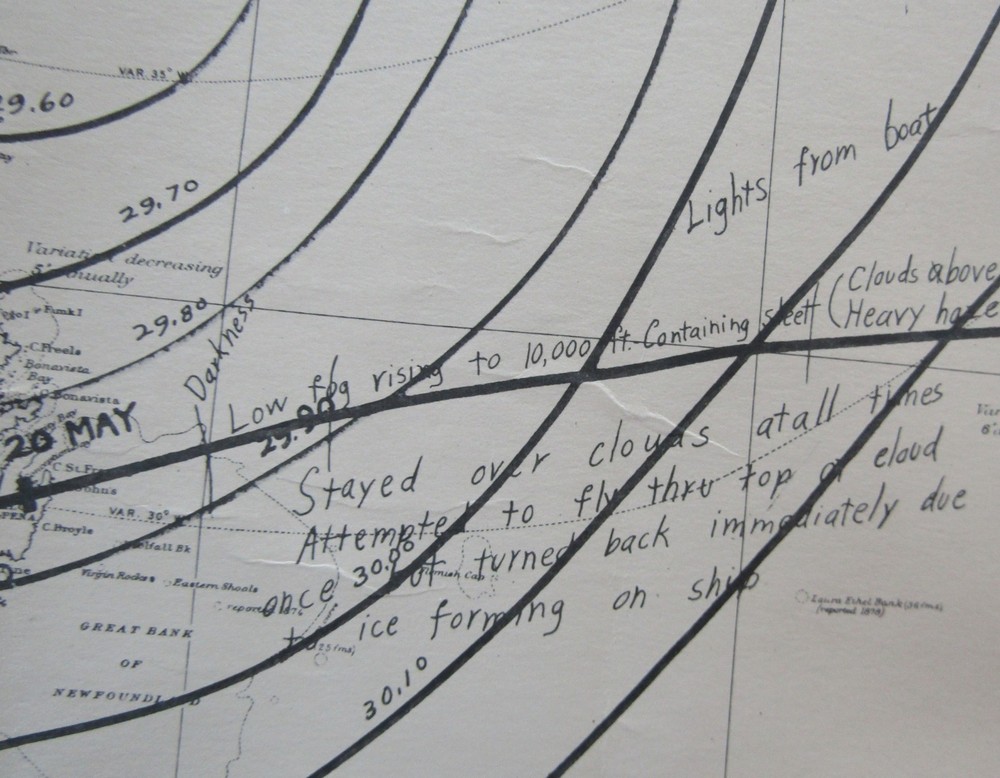 VAR 35° W.
29.60
29.70
Lights from boat
Variation decreasing
5' annually
29.80
Darkness
Funk I
C.Freels
Bonavista
Bay
Bonavista
20 MAY
Low fog rising to 10,000 ft. Containing sleet
(Clouds above
(Heavy haze
29.90
Stayed over clouds atall times
Attempted to fly thru top of cloud
once but turned back immediately due
to ice forming on ship
VAR. 30°
C.Broyle
Virgin Rocks
Eastern Shoals
30.00
Flemish Cap
Laura Ethel Bank (36 fms)
(reported 1878)
GREAT BANK
OF
NEWFOUNDLAND
30.10